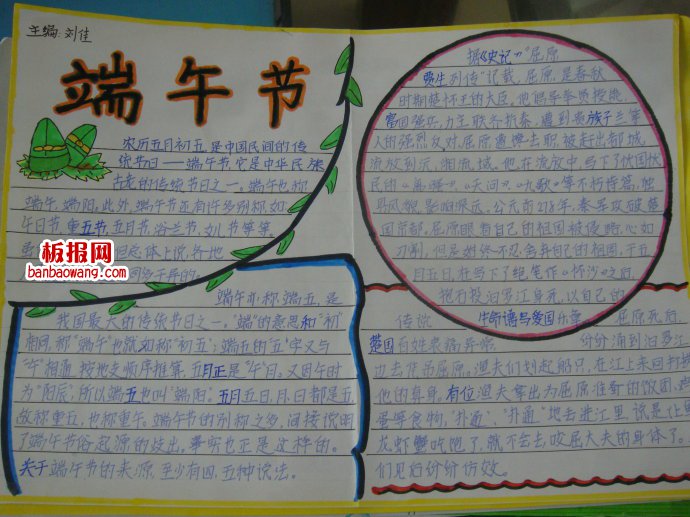 主编:刘佳
端午节
农历五月初五,是中国民间的传
统节日——端午节,它是中华民族
古老的传统节日之一。端午也称
端午,端阳。此外,端午节还有许多别称,如:
午日节,重五节,五月节,浴兰节,女儿节等等。
总体上说,各地
同多于异的。
板报网
banbaowang.com
端午亦称端五,是
我国最大的传统节日之一,“端”的意思和“初”
相同,称“端午”也就如称“初五”;端五的“五”字又与
“午”相通,按地支顺序推算,五月正是“午”月。又因午时
为“阳辰”,所以端五也叫“端阳”。五月五日,月、日都是五,
故称重五,也称重午。端午节的别称之多,间接说明
了端午节俗起源的歧出。事实也正是这样的。
关于端午节的来源,至少有四、五种说法。
据《史记》“屈原
贾生列传”记载,屈原,是春秋
时期楚怀王的大臣。他倡导举贤授能,
富国强兵,力主联齐抗秦,遭到贵族子兰等
人的强烈反对,屈原遭馋去职,被赶出都城,
流放到沅、湘流域。他在流放中,写下了忧国忧
民的《离骚》、《天问》、《九歌》等不朽诗篇,独
具风貌,影响深远。公元前278年,秦军攻破楚
国京都。屈原眼看自己的祖国被侵略,心如
刀割,但是始终不忍舍弃自己的祖国,于五
月五日,在写下了绝笔作《怀沙》之后,
抱石投汨罗江身死,以自己的
生命谱写爱国乐章
传说 屈原死后,
楚国百姓哀痛异常 纷纷涌到汨罗江
边去凭吊屈原。渔夫们划起船只,在江上来回打捞
他的真身。有位渔夫拿出为屈原准备的饭团、鸡
蛋等食物,“扑通、扑通”地丢进江里,说是让鱼
龙虾蟹吃饱了,就不会去咬屈大夫的身体了。
们见后纷纷仿效。